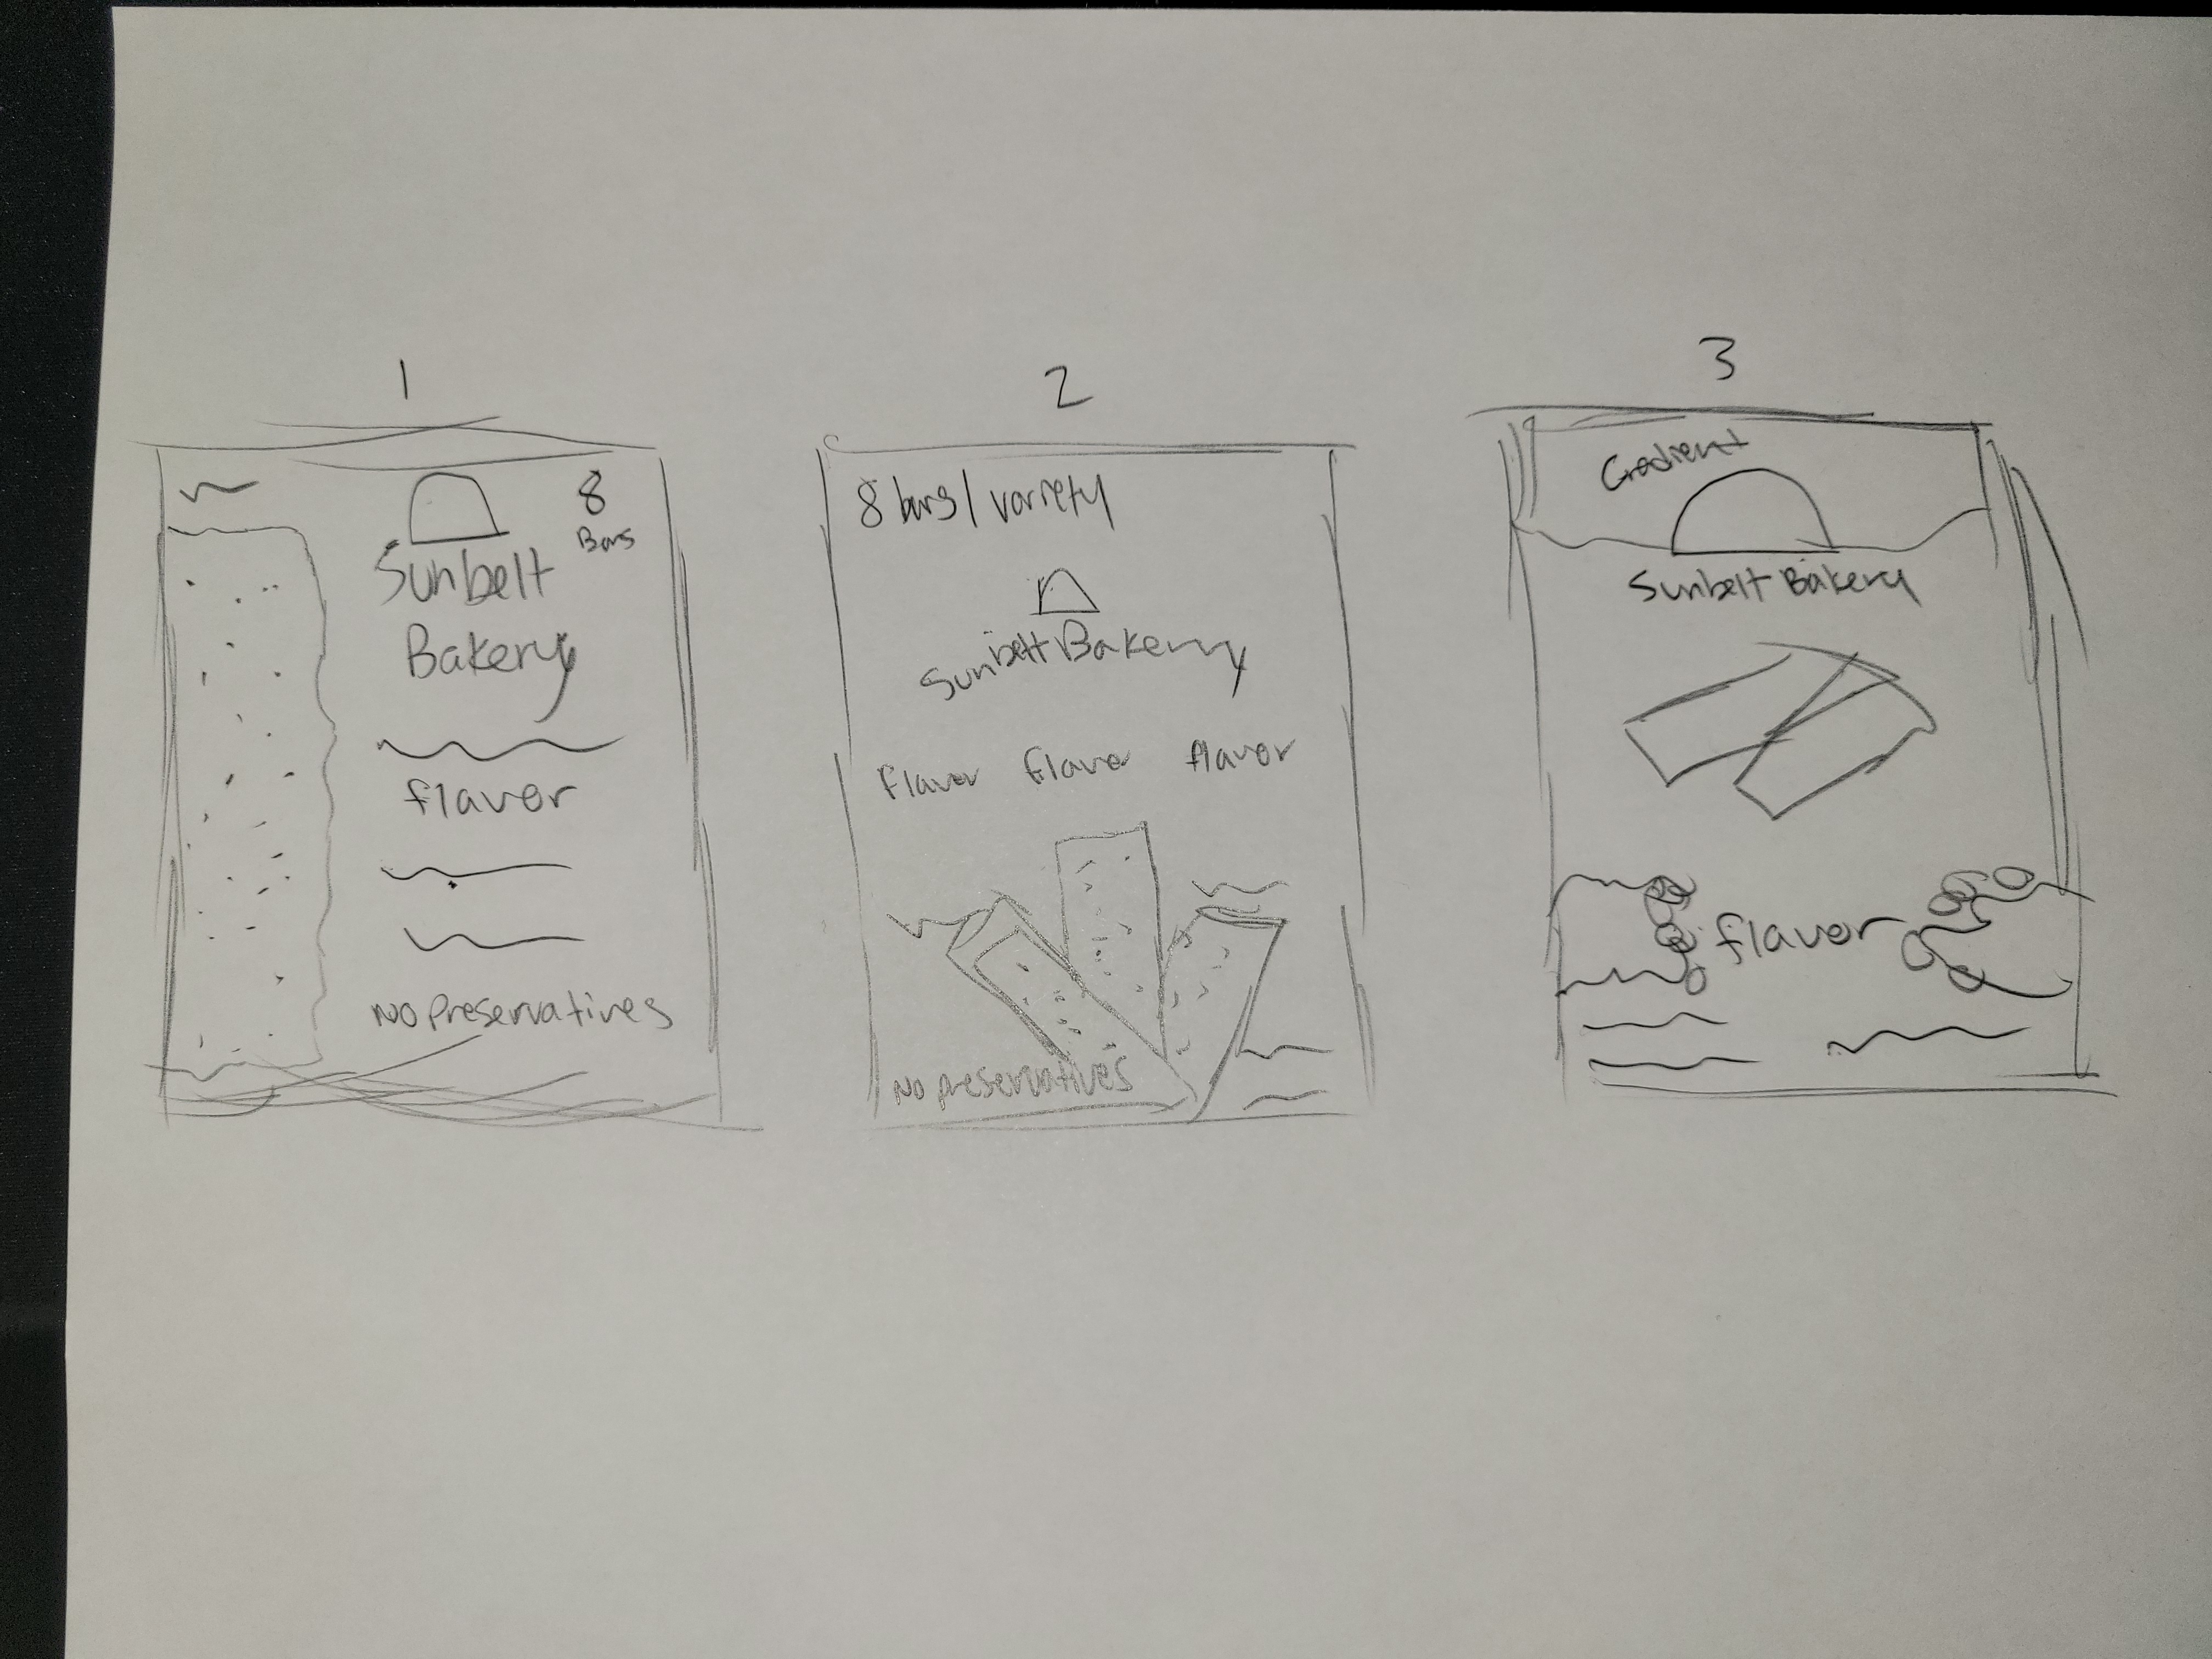 1
8
Bars
Sunbelt
Bakery
flavor
No Preservatives
2
8 bars/variety
Sunbelt Bakery
Flavor Flavor flavor
No preservatives
3
Gradient
Sunbelt Bakery
flavor